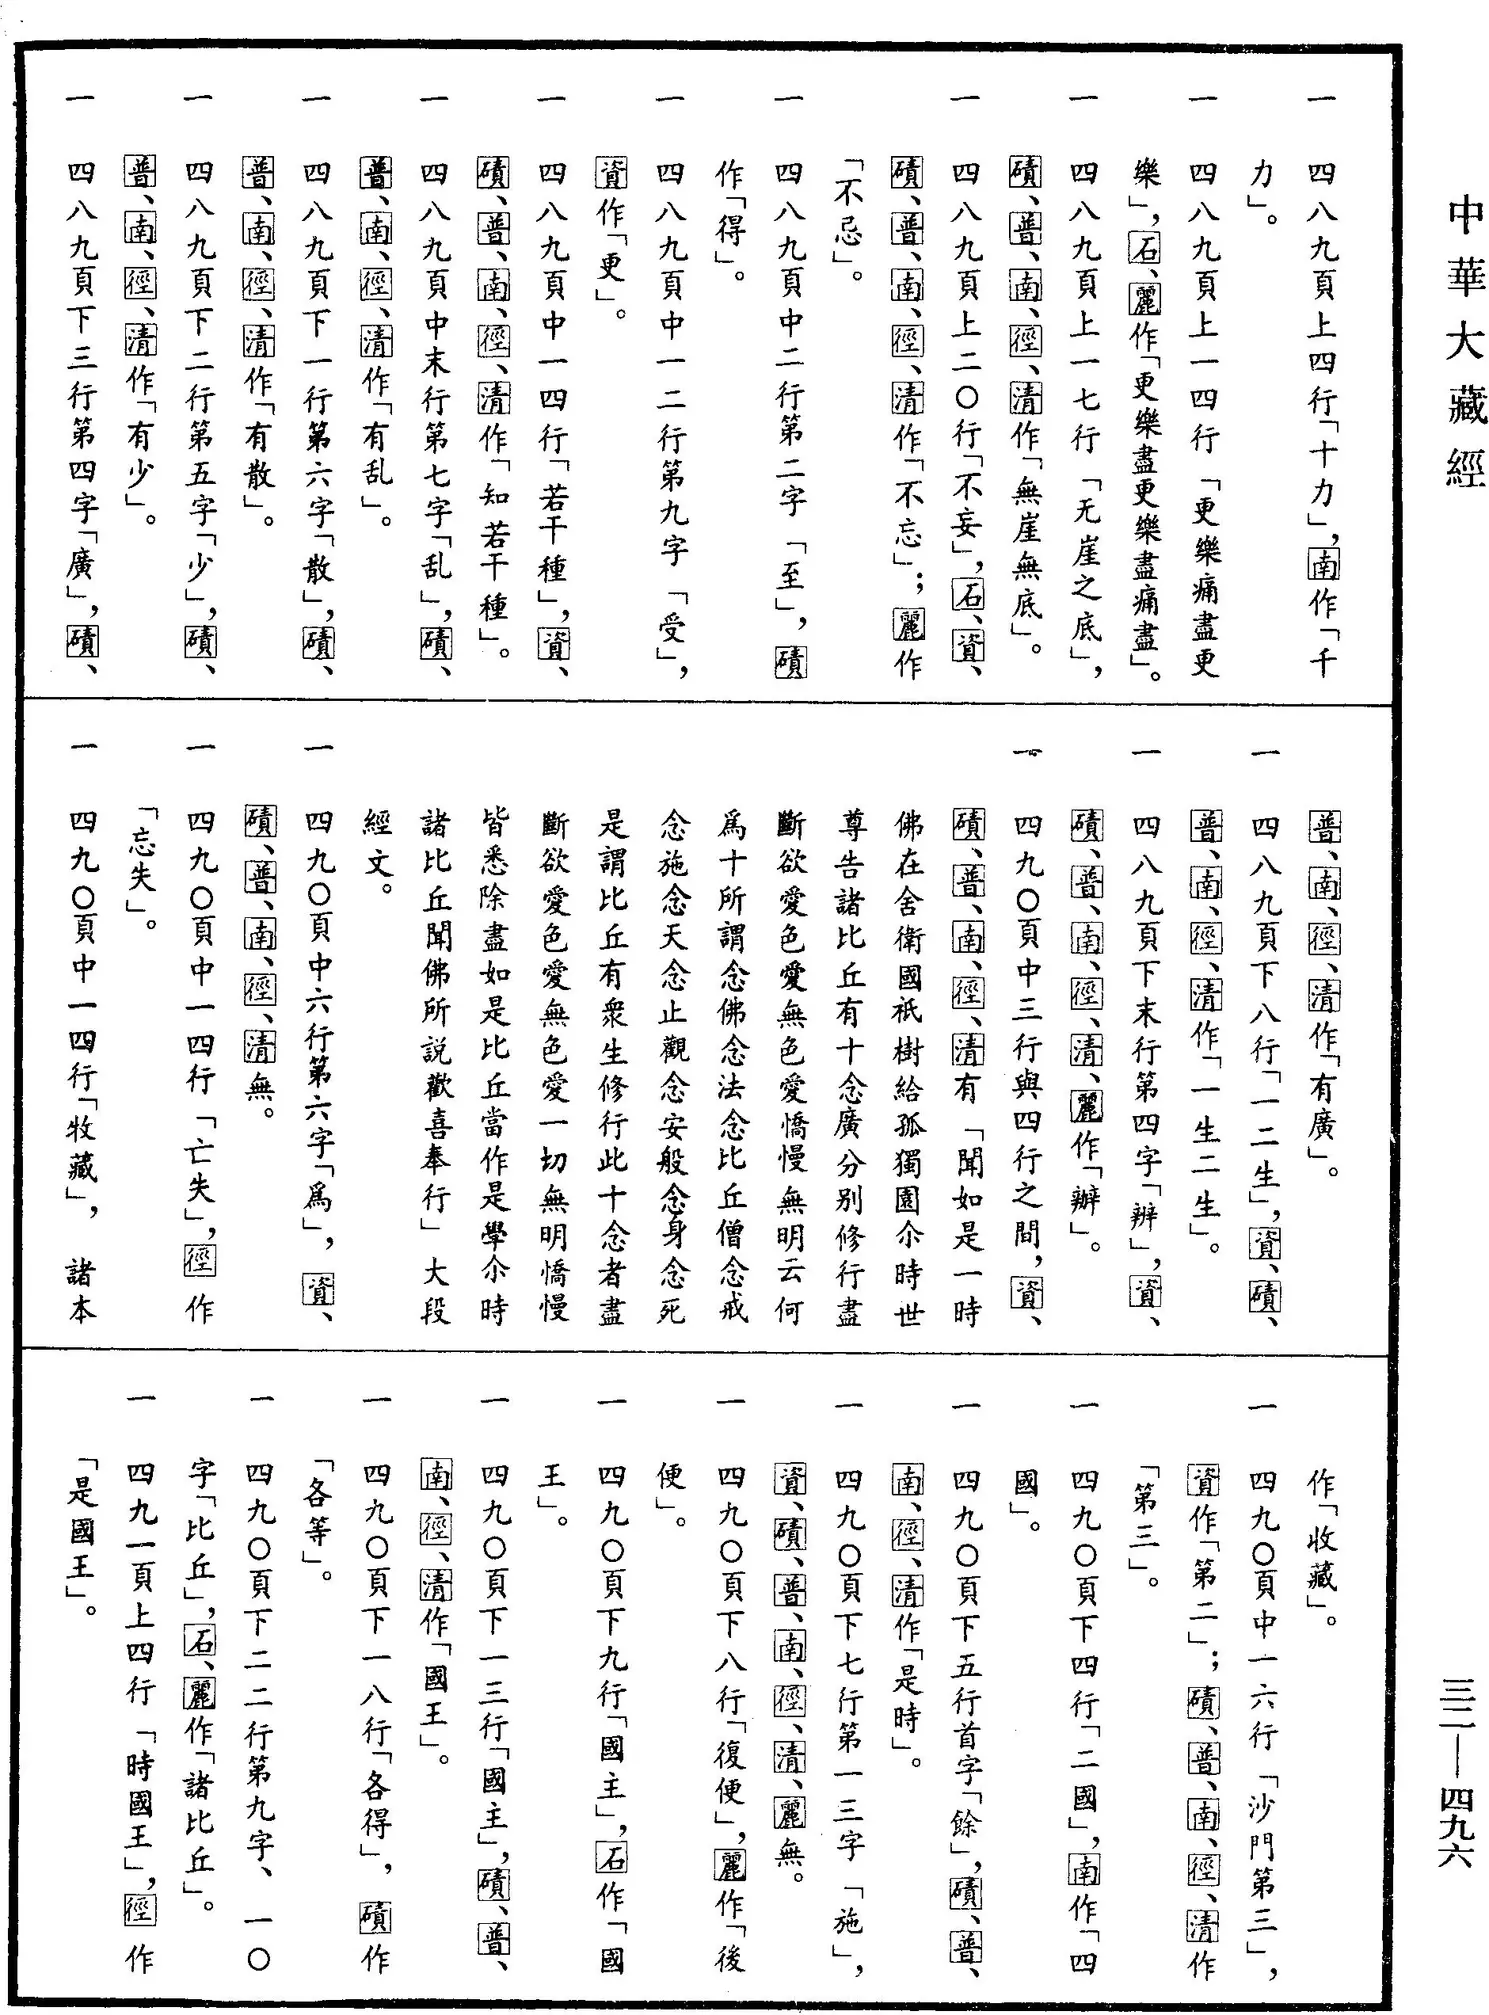 中華大藏經
一　四八九頁上四行「十力」，南作「千
力」。
一　四八九頁上一四行「更樂痛盡更
樂」，石、麗作「更樂盡更樂盡痛盡」。
一　四八九頁上一七行「无崖之底」，
磧、普、南、徑、清作「無崖無底」。
一　四八九頁上二〇行「不妄」，石、資、
磧、普、南、徑、清作「不忘」；麗作
「不忌」。
一　四八九頁中二行第二字「至」，磧
作「得」。
一　四八九頁中一二行第九字「受」，
資作「更」。
一　四八九頁中一四行「若干種」，資、
磧、普、南、徑、清作「知若干種」。
一　四八九頁中末行第七字「乱」，磧、
普、南、徑、清作「有乱」。
一　四八九頁下一行第六字「散」，磧、
普、南、徑、清作「有散」。
一　四八九頁下二行第五字「少」，磧、
普、南、徑、清作「有少」。
一　四八九頁下三行第四字「廣」，磧、
普、南、徑、清作「有廣」。
一　四八九頁下八行「一二生」，資、磧、
普、南、徑、清作「一生二生」。
一　四八九頁下末行第四字「辨」，資、
磧、普、南、徑、清、麗作「辦」。
一　四九〇頁中三行與四行之間，資、
磧、普、南、徑、清有「聞如是一時
佛在舍衛國祇樹給孤獨園尒時世
尊告諸比丘有十念廣分別修行盡
斷欲愛色愛無色愛憍慢無明云何
爲十所謂念佛念法念比丘僧念戒
念施念天念止觀念安般念身念死
是謂比丘有衆生修行此十念者盡
斷欲愛色愛無色愛一切無明憍慢
皆悉除盡如是比丘當作是學尒時
諸比丘聞佛所説歡喜奉行」大段
經文。
一　四九〇頁中六行第六字「爲」，資、
磧、普、南、徑、清無。
一　四九〇頁中一四行「亡失」，徑作
「忘失」。
一　四九〇頁中一四行「牧藏」，諸本
作「收藏」。
一　四九〇頁中一六行「沙門第三」，
資作「第二」；磧、普、南、徑、清作
「第三」。
一　四九〇頁下四行「二國」，南作「四
國」。
一　四九〇頁下五行首字「餘」，磧、普、
南、徑、清作「是時」。
一　四九〇頁下七行第一三字「施」，
資、磧、普、南、徑、清、麗無。
一　四九〇頁下八行「復便」，麗作「後
便」。
一　四九〇頁下九行「國主」，石作「國
王」。
一　四九〇頁下一三行「國主」，磧、普、
南、徑、清作「國王」。
一　四九〇頁下一八行「各得」，磧作
「各等」。
一　四九〇頁下二二行第九字、一〇
字「比丘」，石、麗作「諸比丘」。
一　四九一頁上四行「時國王」，徑作
「是國王」。
三二—四九六